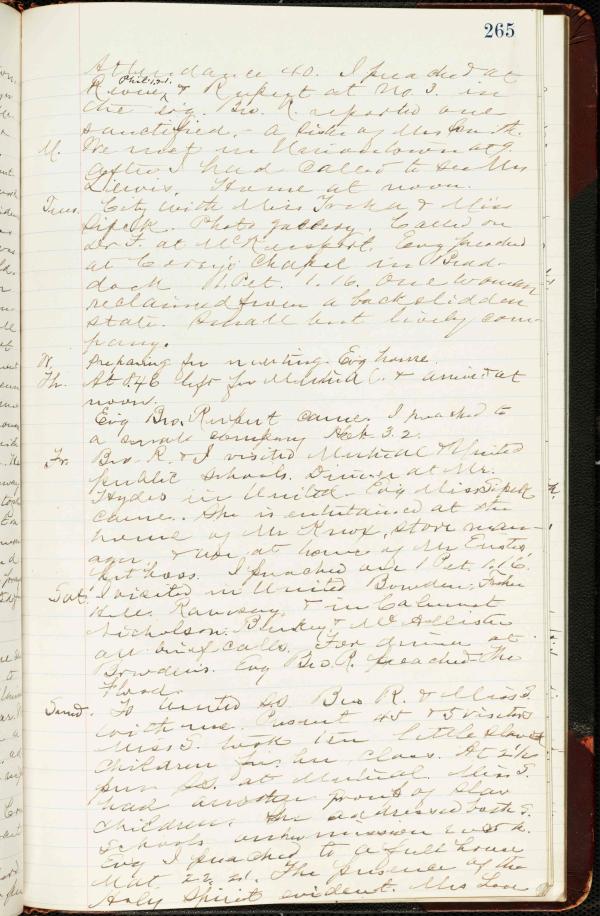 265
Attendance 40. I preached at
Phil. 1.21.
River & Rupert at No. 3. in
the evg. Bro. R. reported one
sanctified, - a sister of Mrs Smith.
M. We met in Uniontown at 9
after I had called to see Mrs
Lewis. Home at noon.
Tues. City with Miss & Miss
Sipek. Photo gallery. Called on
Dr F. at McKeesport. Evg preached
at Chapel in Brad-
dock 1 Pet. 1.16. One woman
reclaimed from a backslidden
state. Small but lively com-
pany.
W. Preparing for meeting. Evg home.
Th. At 8.46 left for Mutual C. & arrived at
noon.
Evg Bro. Rupert came. I preached to
a small company Hab. 3.2.
Fr. Bro R. & I visited Mutual & United
public schools. Dinner at Mr.
Hydes in United. Evg Miss Sipek
came. She is entertained at the
home of Mr Knox, store man-
ager & we at home of Mr
boss. I preached on 1 Pet. 1.16.
Sat. I visited in United Bowden,
Ramsay, & in Calumet
Nicholson, & McAllister
all brief calls. For dinner at
Bowden's. Evg Bro. R. preached The
Flood.
Sund. To United SS. Bro R. & Miss S.
with me. Present 45 & 5 visitors
Miss S. took ten little Slavish
children for her class. At 2½
p.m. SS. at Mutual. Miss S.
had another group of Slav
children. She addressed both S.
Schools on her mission work.
Evg I preached to a full house
Mat. 22.21. The presence of the
Holy Spirit evident. Mrs Low